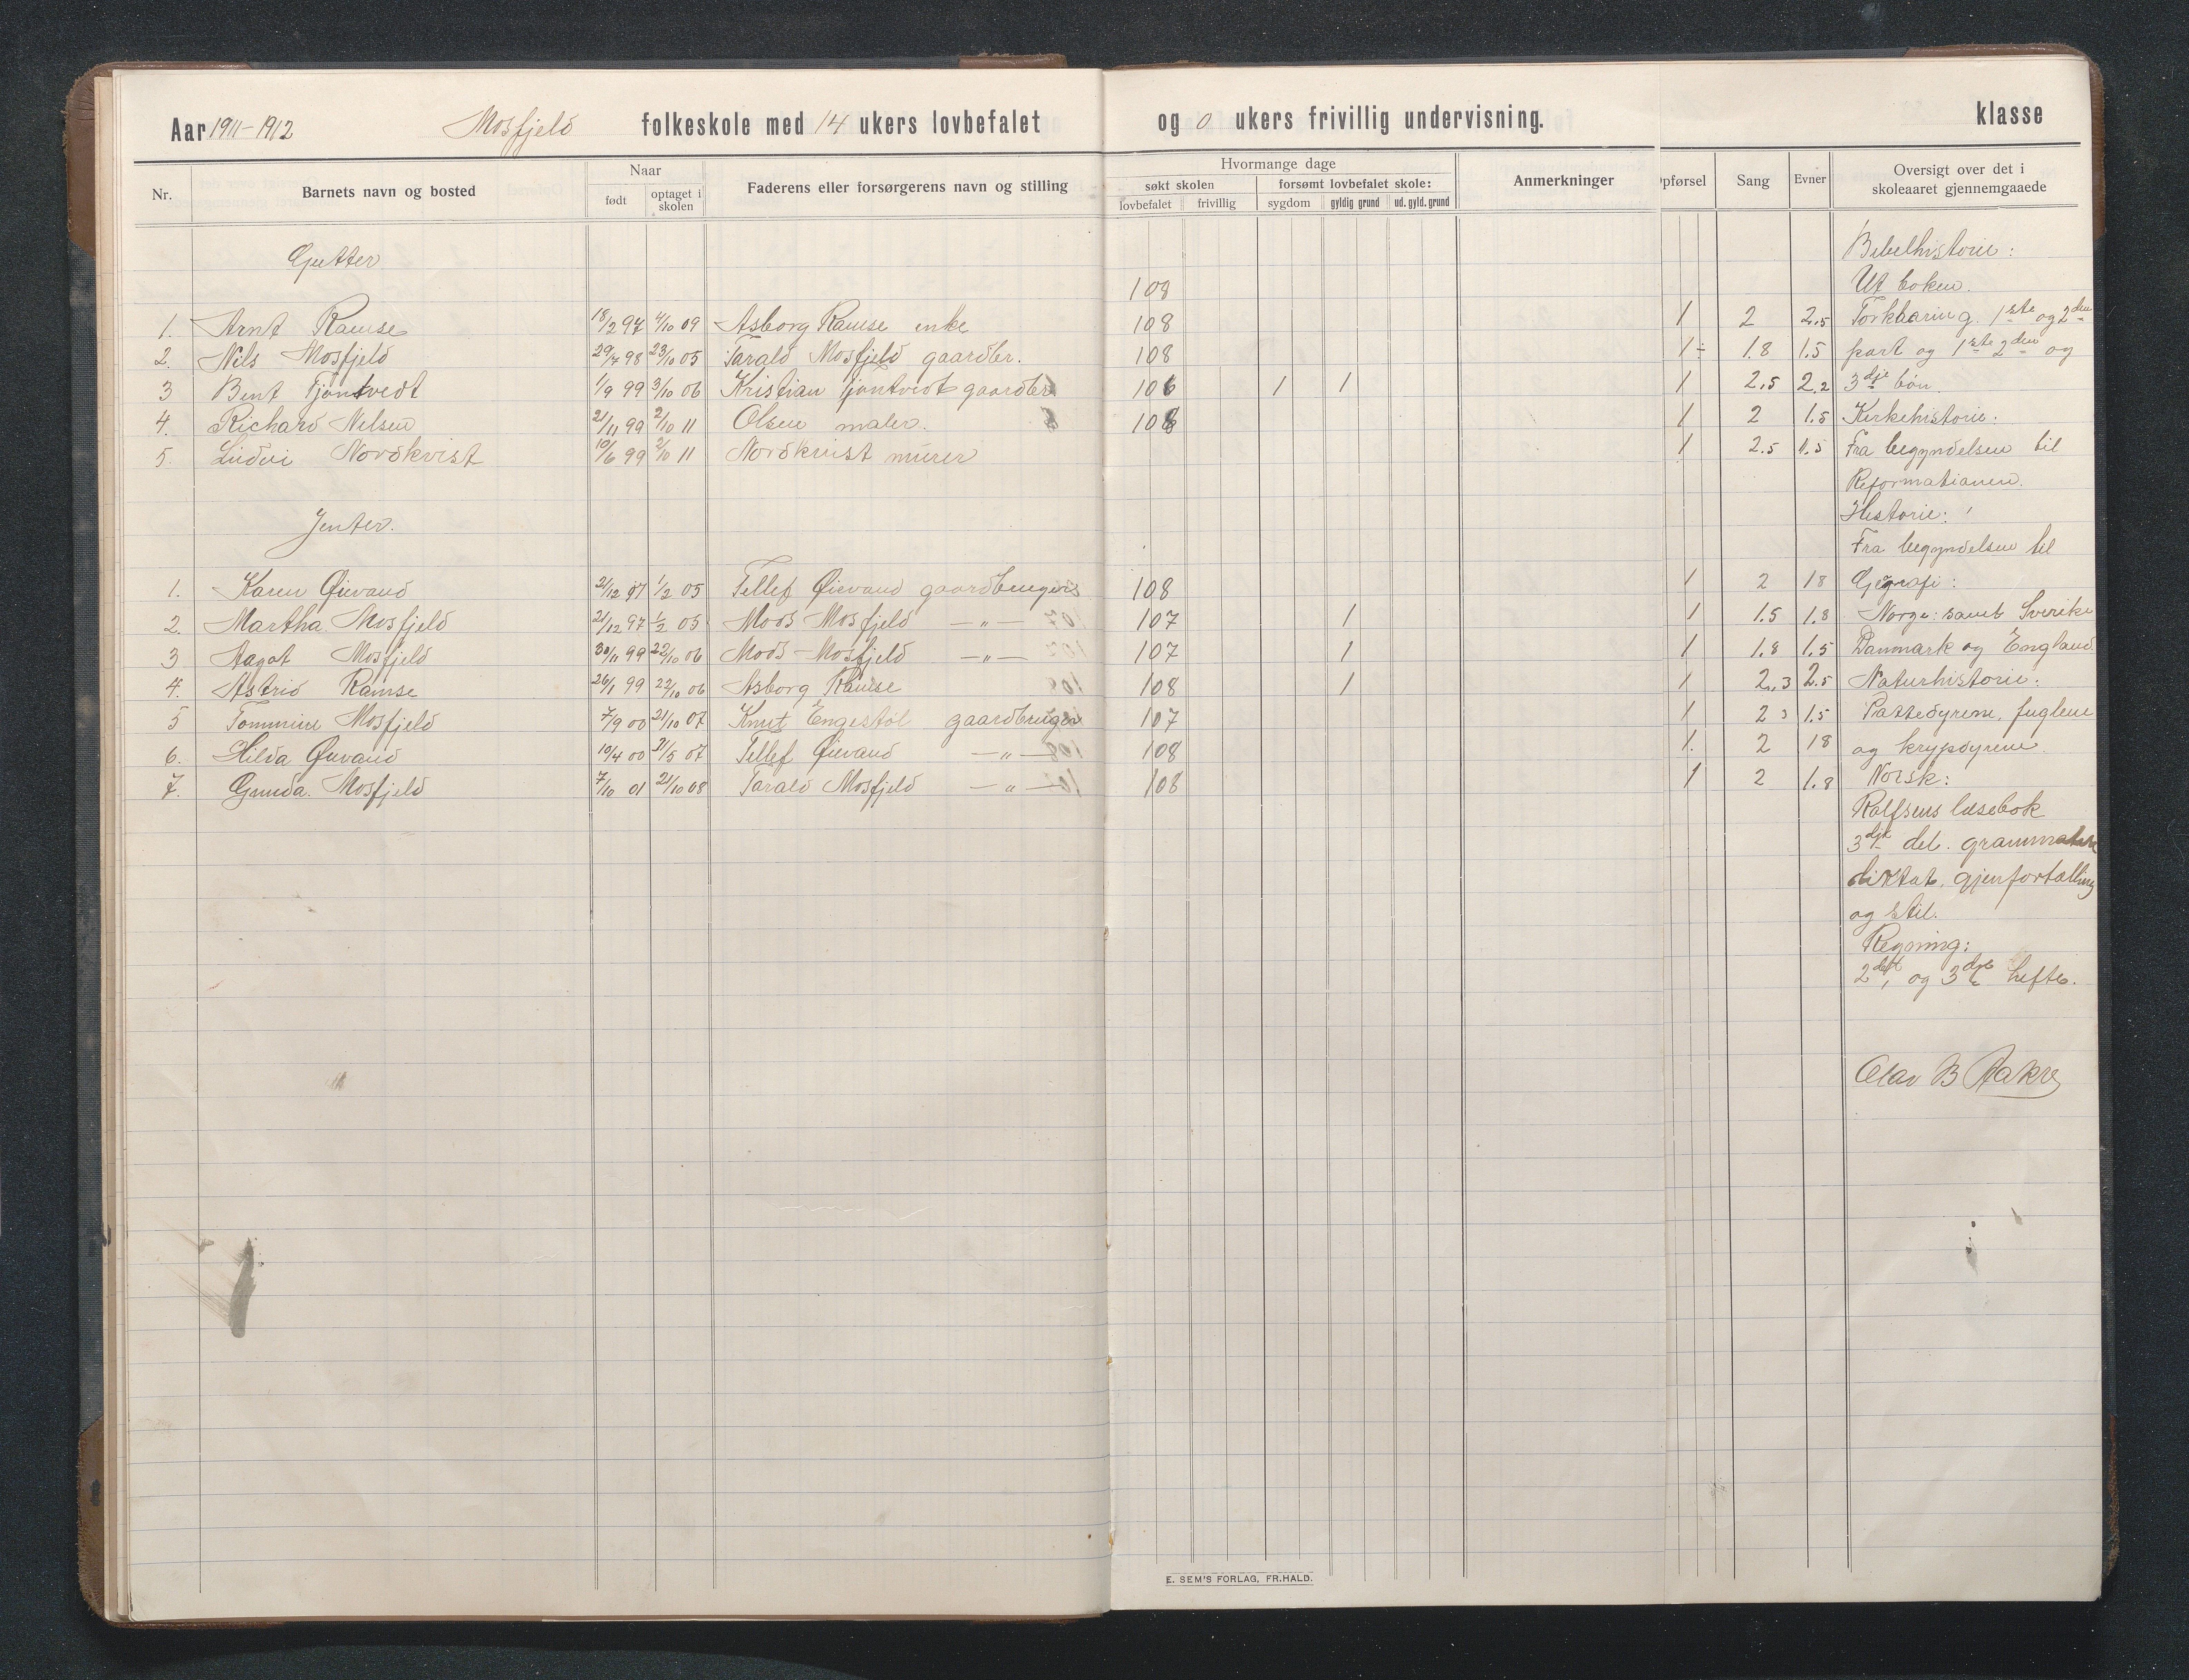 Aar 1911-1912 Mosfjeld folkeskole med 14 ukers lovbefalet og 0 ukers frivillig undervisning. klasse
Nr. Barnets navn og bosted Naar født optaget i skolen Faderens eller forsørgerens navn og stilling
Hvormange dage
søkt skolen forsømt lovbefalet skole:
lovbefalet frivillig sygdom gyldig grund ud. gyld. grund
Anmerkninger
pførsel Sang Evner Oversigt over det i skoleaaret gjennemgaaede
Gutter
108
1. Arnt Ramse 18/2 97 4/10 09 Asborg Ramse enke 108 1 2 2.5
2. Nils Mosfjeld 29/7 98 23/10 05 Tarald Mosfjeld gaardbr. 108 1÷ 1.8 1.5
3 Bent Tjøntvedt 1/9 99 3/10 06 Kristian Tjøntvedt gaardbr 106 1 1 1 2.5 2.2
4. Richard Nelsen 21/11 99 2/10 11 Olsen maler. 108 1 2 1.5
5. Ludvi Nordkvist 10/6 99 2/10 11 Nordkvist murer 1 2.5 1.5
Jenter.
1. Karen Øievand 21/12 97 1/2 05 Tellef Øievand gaardbrugers 108 1 2 18
2. Martha Mosfjeld 21/12 97 1/2 05 Mods Mosfjeld —„— 107 1 1 1.5 1.8
3 Aagot Mosfjeld 30/11 99 22/10 06 Mods Mosfjeld —„— 107 1 1 1.8 1.5
4. Astrid Ramse 26/1 99 22/10 06 Asborg Ramse 108 1 1 2.3 2.5
5 Tommine Mosfjeld 7/9 00 21/10 07 Knut Engestøl gaardbruger 107 1 2 3 1.5
6. Hilda Øievand 10/4 00 21/5 07 Tellef Øievand —„— 108 1. 2 18
7. Gunda. Mosfjeld 7/10 01 21/10 08 Tarald Mosfjeld —„— 108 1 2 1.8
Bibelhistorie:
Ut boken.
Forklaring. 1ste og 2den
part og 1ste 2den og
3dje bøn
Kirkehistorie:
Fra begyndelsen til
Reformationen.
Historie:
Fra begyndelsen til
Geografi:
Norge: samt Sverike
Danmark og England
Naturhistorie:
Pattedyrene, fuglene
og krypdyrene.
Norsk:
Rolfsens læsebok
3dje del. grammatikk
diktat, gjenfortælling
og stil.
Regning:
2det og 3dje hefte.
Olav B Aakre
E. SEM'S FORLAG, FR.HALD.